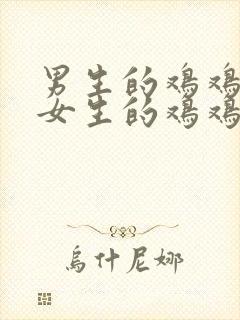 男生的鸡鸡
女生的鸡鸡
乌什尼娜